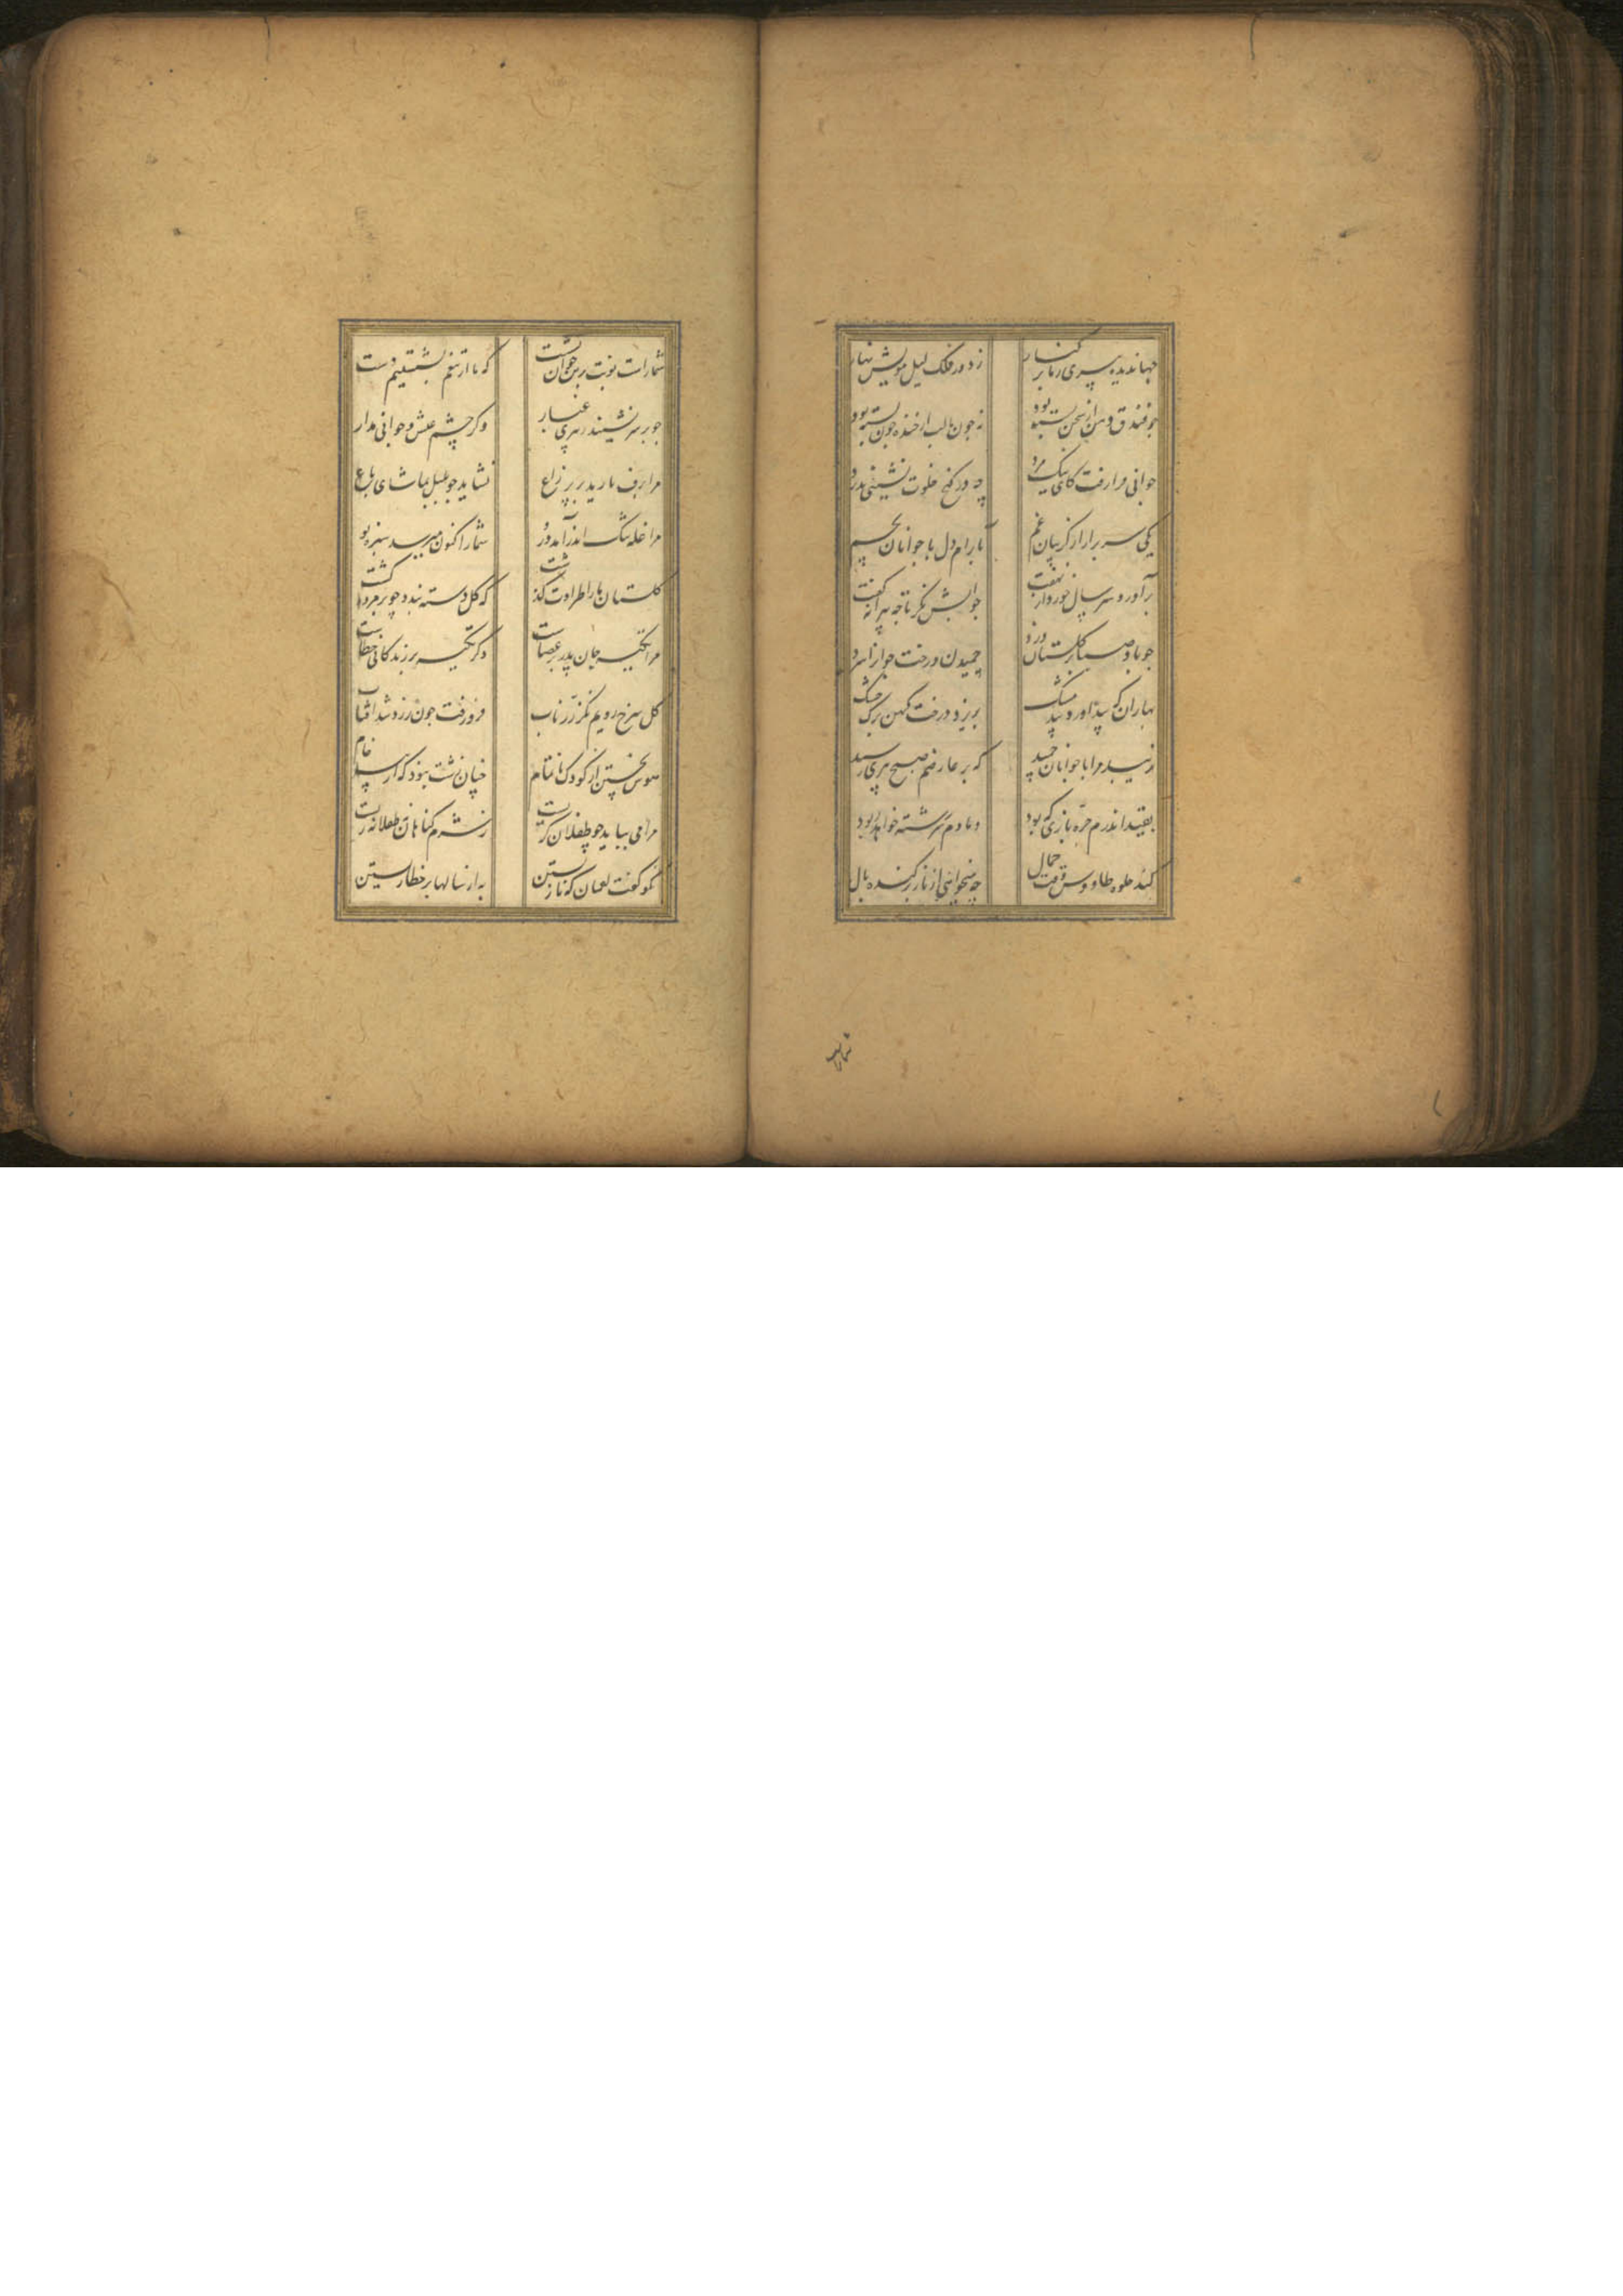 جهاندیده پیری ز ما بر کنار ز دور فلک لیل مویش نهار
چو فندق دهن از سخن بسته بود نه چون ما لب از خنده چون پسته بود
جوانی فرا رفت کای نیک مرد چه در کنج خلوت نشینی بدرد
یکی سر برار از کریبان غم بارام دل با جوانان بچم
برآورد سر سال خورد از نهفت جوابش نکر تا چه پیرانه کفت
چو باد صبا بر کلستان وزد چمیدن درخت جوان را سزد
بهاران که بید آورد بید مشک بریزد درخت کهن برک خشک
نزیبد مرا با جوانان چمید که بر عارضم صبح پیری رسید
بقید اندرم جره بازی که بود دمادم سر رشته خواهد ربود
کند جلوه طاووس جمال چه میخواهی از باز برکنده بال
شما راست
شما راست نوبت برین خوان نشست که ما از تنعم بشستیم دست
چو بر سر نشیند ز پیری غبار دکر چشم عیش و جوانی مدار
مرا برف بارید بر پر زاغ نشاید چو بلبل تماشای باغ
مرا غله تنک اندر آمد درو شما را کنون میرسد سبزه نو
کلستان ما را طراوت کذشت که کل دسته بندد چو پژمرده کشت
مرا تکیه جان پدر بر عصاست دکر تکیه بر زندکانی خطاست
کل سرخ رویم نکر زر ناب فرو رفت چون زرد شد آفتاب
هوس پختن از کودک ناتمام چنان زشت نبود که از پیر خام
مرا می بباید چو طفلان کریست ز شرم کناهان نه طفلانه زیست
نکو کفت لقمان که نازیستن به از سالها بر خطا زیستن